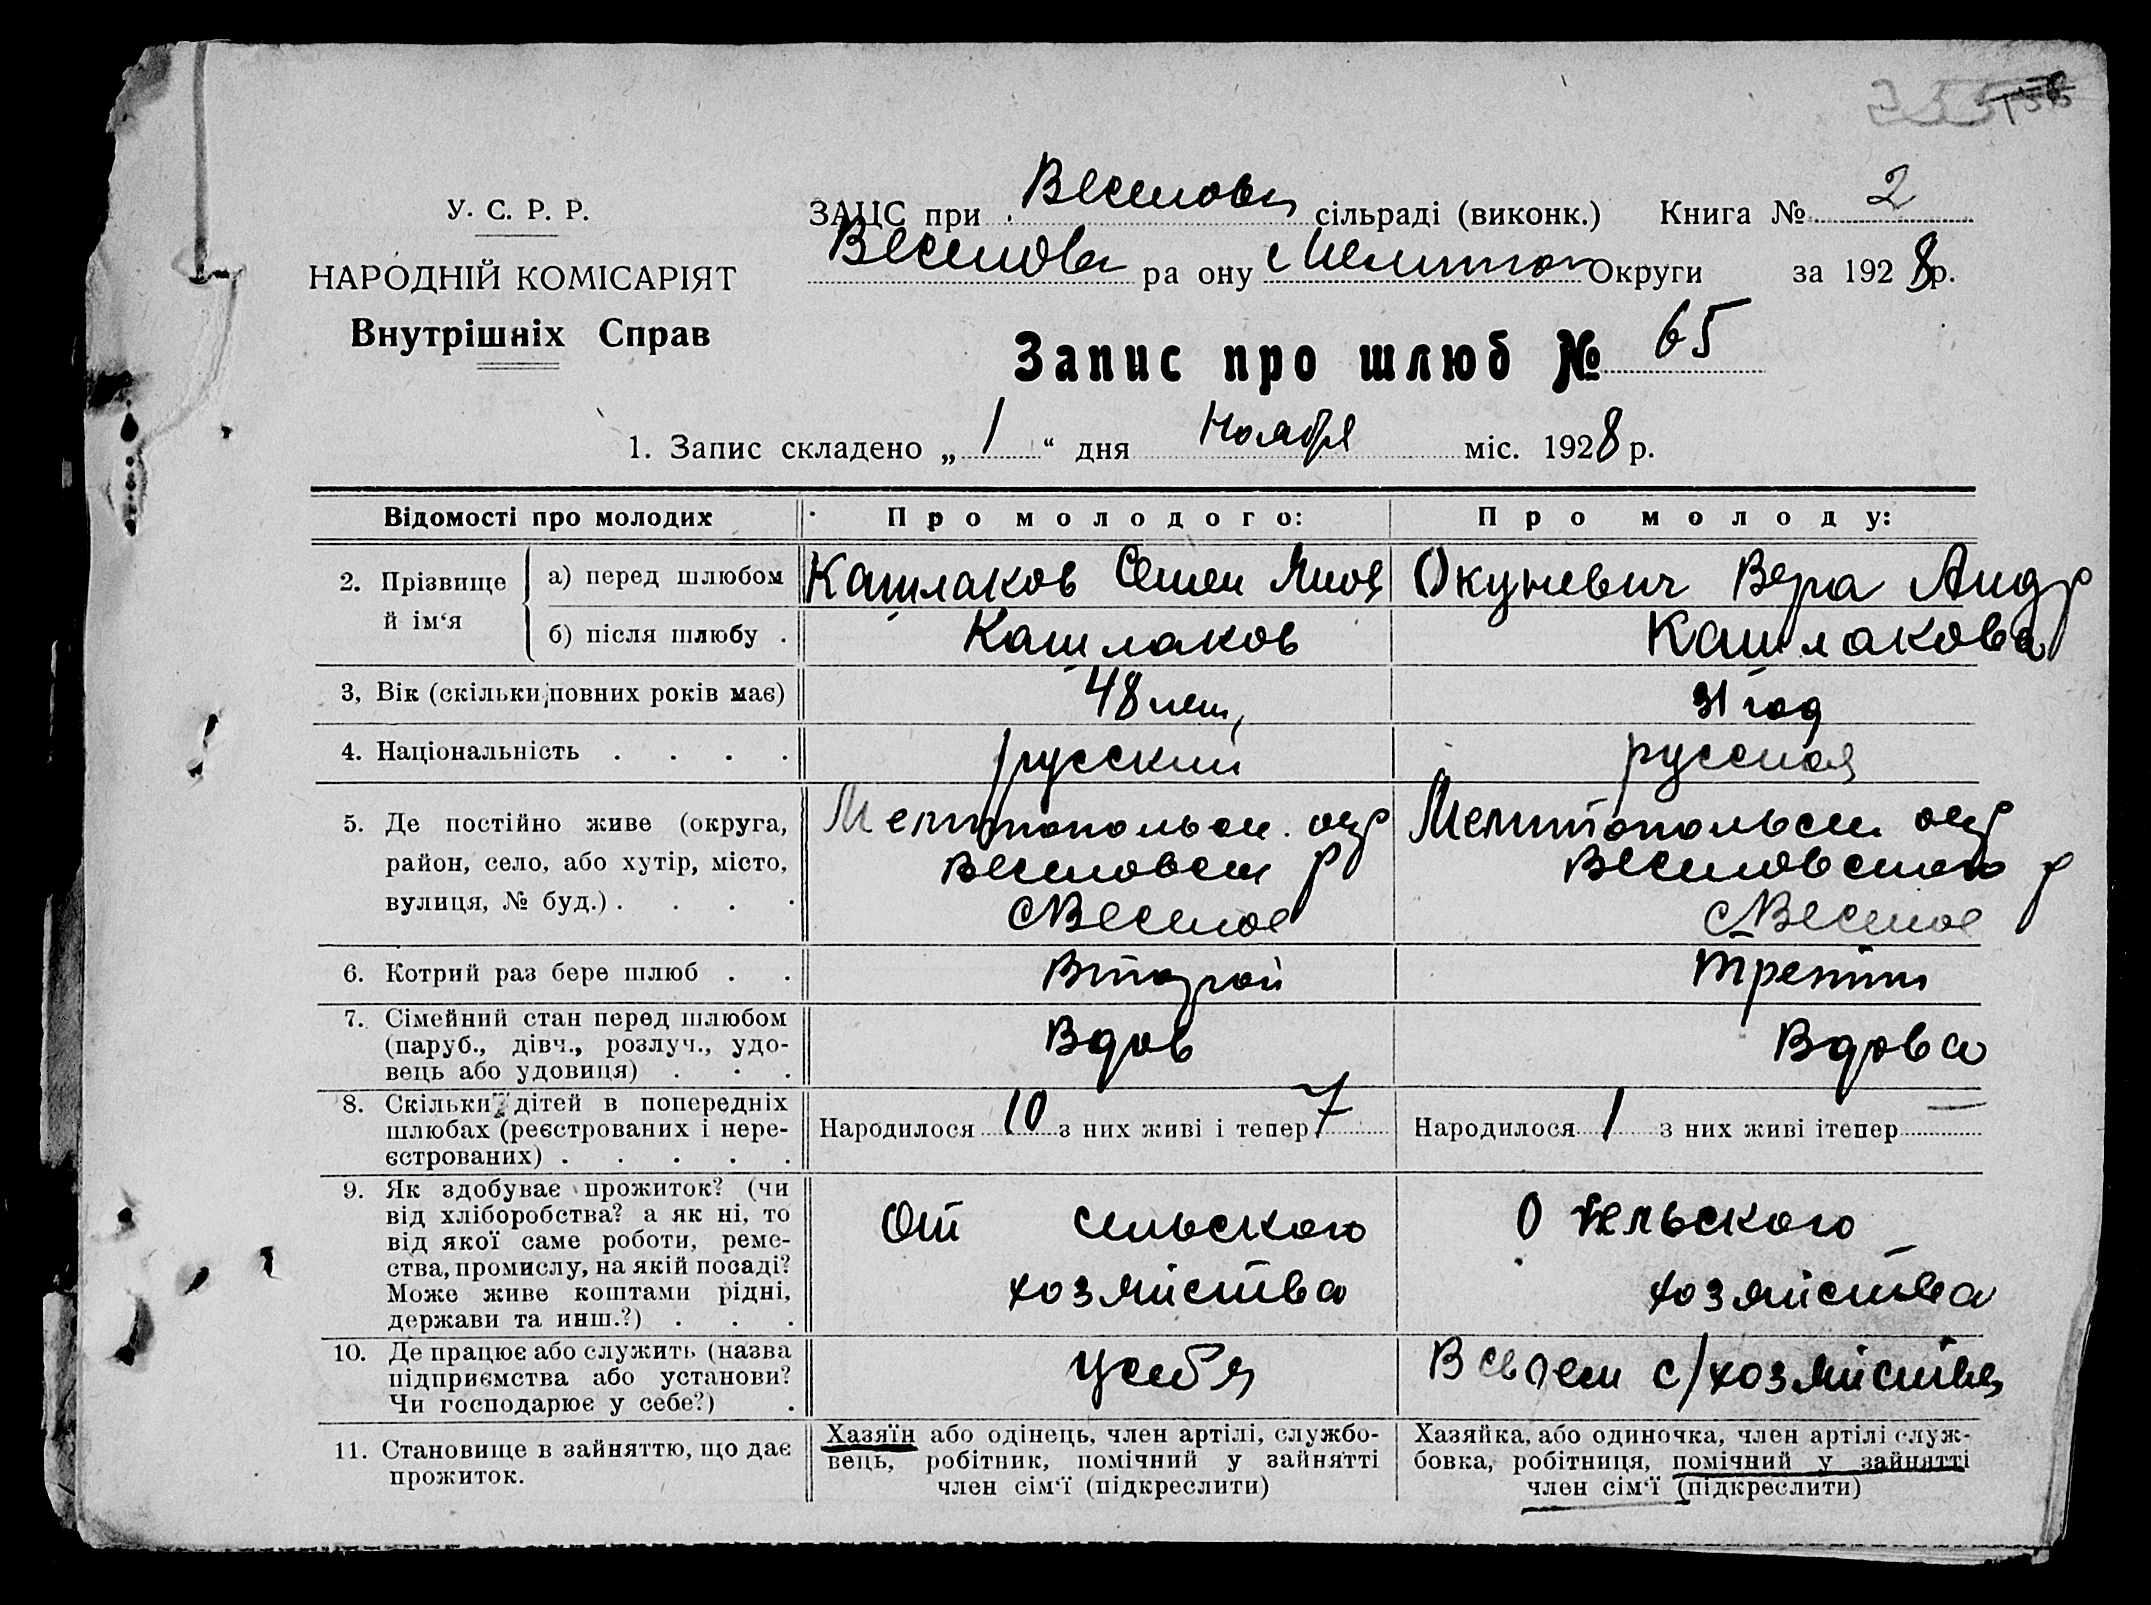 У. С. Р. Р.
НАРОДНІЙ КОМІСАРІЯТ
Внутрішніх Справ
ЗАЦС при Веселовск сільраді (виконк.) Книга № 2
Веселовск ра ону Мелитоп Округи за 1928 р.
Запис про шлюб № 65
1. Запис складено „ 1 “ дня Ноября міс. 1928 р.
Відомості про молодих Про молодого: Про молоду:
2. Прізвище й ім‘я
а) перед шлюбом Кашлаков Семен Яков Окуневич Вера Андр
б) після шлюбу . Кашлаков Кашлакова
3, Вік (скільки повних років має) 48 лет, 31 год
4. Національність . . . . русский русская
5. Де постійно живе (округа,
район, село, або хутір, місто,
вулиця, № буд.) . . . .
Мелитопольск. окр
Веселовск р
с Веселое
Мелитопольск окр
Веселовского р
с Веселое
6. Котрий раз бере шлюб . . Второй Третий
7. Сімейний стан перед шлюбом
(паруб., дівч., розлуч., удо-
вець або удовиця) . . .
Вдов Вдова
8. Скільки дітей в попередніх
шлюбах (реєстрованих і нере-
єстрованих) . . . . .
Народилося 10 з них живі і тепер 7 Народилося 1 з них живі ітепер —
9. Як здобуває прожиток? (чи
від хліборобства? а як ні, то
від якої саме роботи, реме-
ства, промислу, на якій посаді?
Може живе коштами рідні,
держави та инш.?) . . .
От сельского
хозяйства
От сельского
хозяйства
10. Де працює або служить (назва
підприємства або установи?
Чи господарює у себе?) .
У себя В своем с/хозяйстве
11. Становище в зайняттю, що дає
прожиток.
Хазяїн або одінець, член артілі, службо-
вець, робітник, помічний у зайнятті
член сім‘ї (підкреслити)
Хазяйка, або одиночка, член артілі служ-
бовка, робітниця, помічний у зайнятті
член сім‘ї (підкреслити)